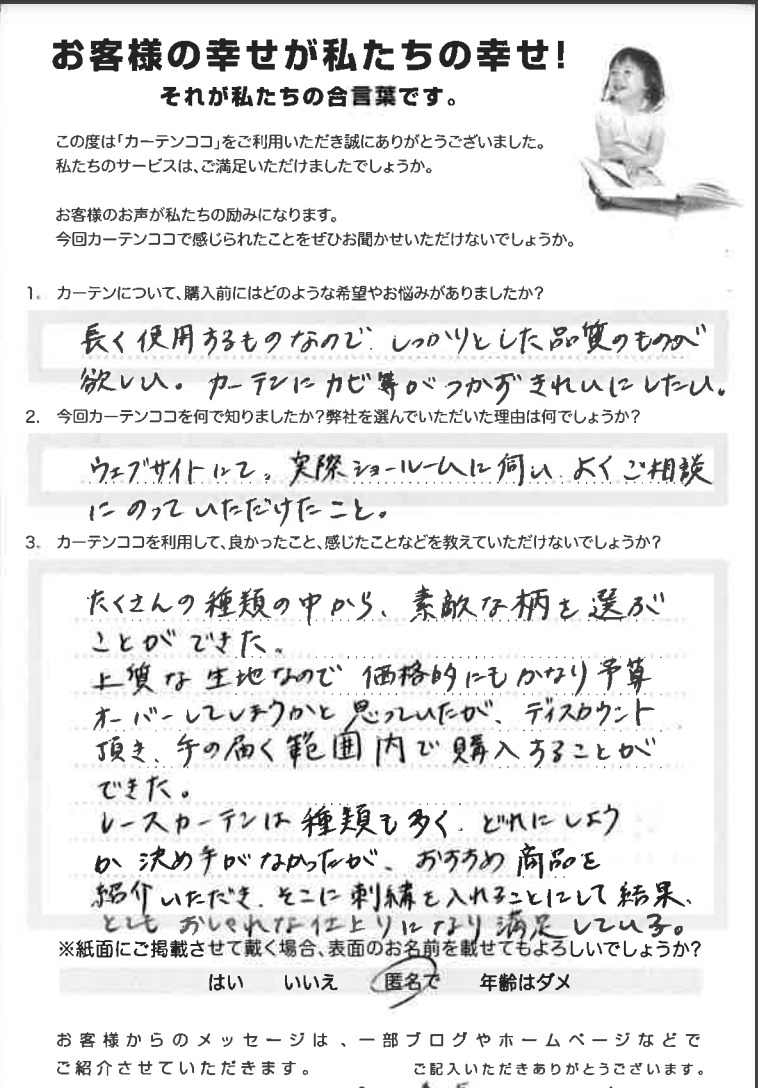 お客様の幸せが私たちの幸せ!
それが私たちの合言葉です。
この度は「カーテンココ」をご利用いただき誠にありがとうございました。
私たちのサービスは、ご満足いただけましたでしょうか。
お客様のお声が私たちの励みになります。
今回カーテンココで感じられたことをぜひお聞かせいただけないでしょうか。
1. カーテンについて、購入前にはどのような希望やお悩みがありましたか?
長く使用するものなので、しっかりとした品質のものが
欲しい。カーテンにカビ等がつかずきれいにしたい。
2. 今回カーテンココを何で知りましたか?弊社を選んでいただいた理由は何でしょうか?
ウェブサイトにて。実際ショールームに伺い、よくご相談
にのっていただけたこと。
3. カーテンココを利用して、良かったこと、感じたことなどを教えていただけないでしょうか?
たくさんの種類の中から、素敵な柄を選ぶ
ことができた。
上質な生地なので価格的にもかなり予算
オーバーしてしまうかと思っていたが、ディスカウント
頂き、手の届く範囲内で購入することが
できた。
レースカーテンは種類も多く、どれにしよう
か決め手がなかったが、おすすめ商品を
紹介いただき、そこに刺繍を入れることにして結果、
とてもおしゃれな仕上りになり満足している。
※紙面にご掲載させて戴く場合、表面のお名前を載せてもよろしいでしょうか?
はい いいえ 匿名で 年齢はダメ
お客様からのメッセージは、一部ブログやホームページなどで
ご紹介させていただきます。 ご記入いただきありがとうございます。